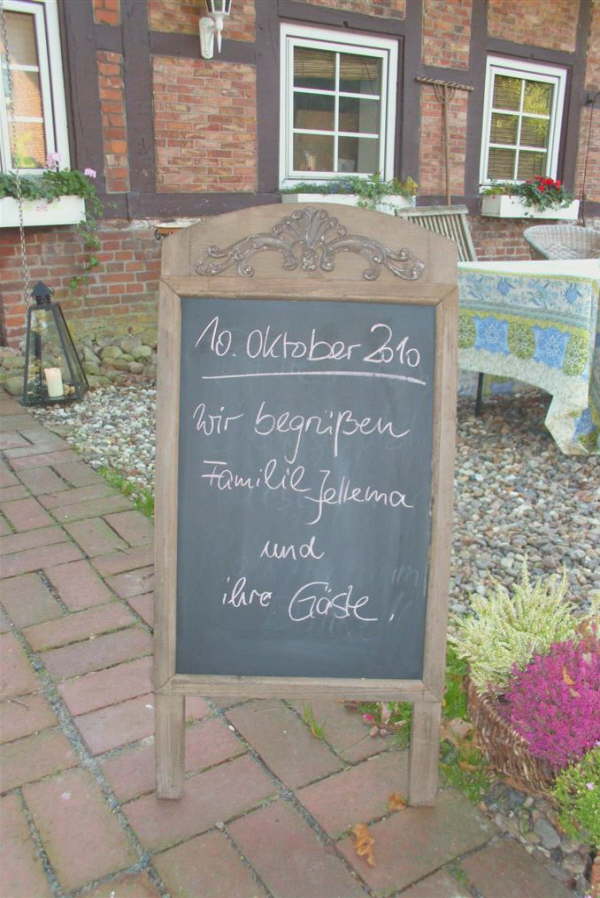 10. Oktober 2010
Wir begrüßen
Familie Jellema
und
ihre Gäste!